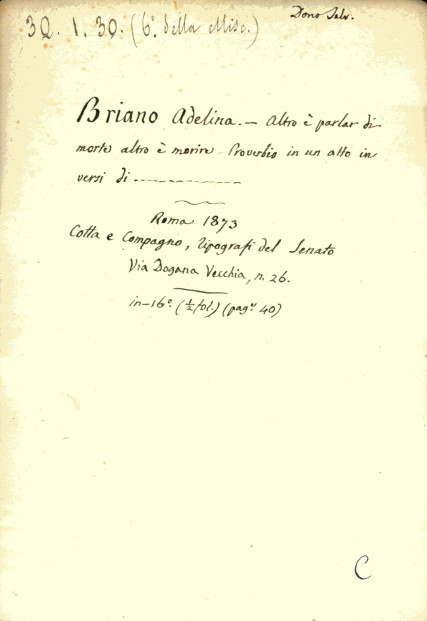 3Q. 1. 30. (6.° della Misc.)
Dono Salv.
Briano Adelina. — Altro è parlar di
morte altro è morire - Proverbio in un atto in
versi di ------------
Roma 1873
Cotta e Compagno, tipografi del Senato
Via Dogana Vecchia, n. 26.
in-16°. (½ fol.) (pagg. 40)
C